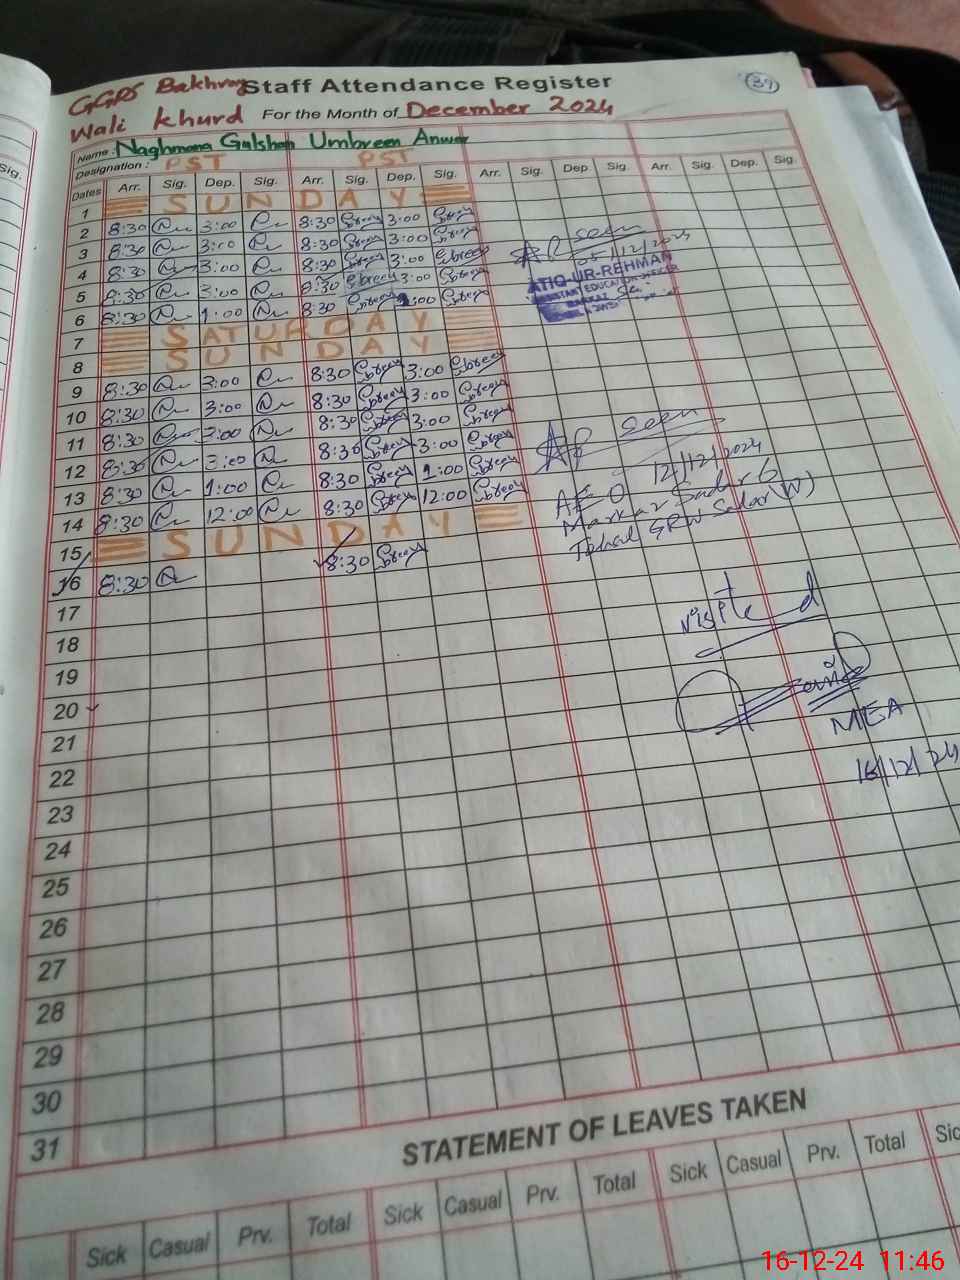 GGPS Bakhray Staff Attendance Register 39
Wali Khurd For the Month of December 2024
Name: Naghmana Gulshan Umbreen Anwar
Designation: PST PST
Dates Arr. Sig. Dep. Sig. Arr. Sig. Dep. Sig. Arr. Sig. Dep. Sig. Arr. Sig. Dep. Sig.
Sig.
1 SUNDAY
2 8:30 3:00 8:30 3:00
3 8:30 3:00 8:30 3:00
4 8:30 3:00 8:30 3:00
5 8:30 3:00 8:30 3:00
6 8:30 1:00 8:30 1:00
7 SATURDAY
8 SUNDAY
9 8:30 3:00 8:30 3:00
10 8:30 3:00 8:30 3:00
11 8:30 3:00 8:30 3:00
12 8:30 3:00 8:30 3:00
13 8:30 1:00 8:30 1:00
14 8:30 12:00 8:30 12:00
15 SUNDAY
16 8:30 8:30
17
18
19
20
21
22
23
24
25
26
27
28
29
30
31
seen
05/12/2024
ATIQ-UR-REHMAN
ASSISTANT EDUCATION OFFICER
MARKAZ
seen
12/12/2024
AEO
Markaz Sadar 6
Tehsil GRW Sadar (W)
visited
MEA
16/12/24
STATEMENT OF LEAVES TAKEN
Sick Casual Prv. Total Sick Casual Prv. Total Sick Casual Prv. Total Sic
16-12-24 11:46